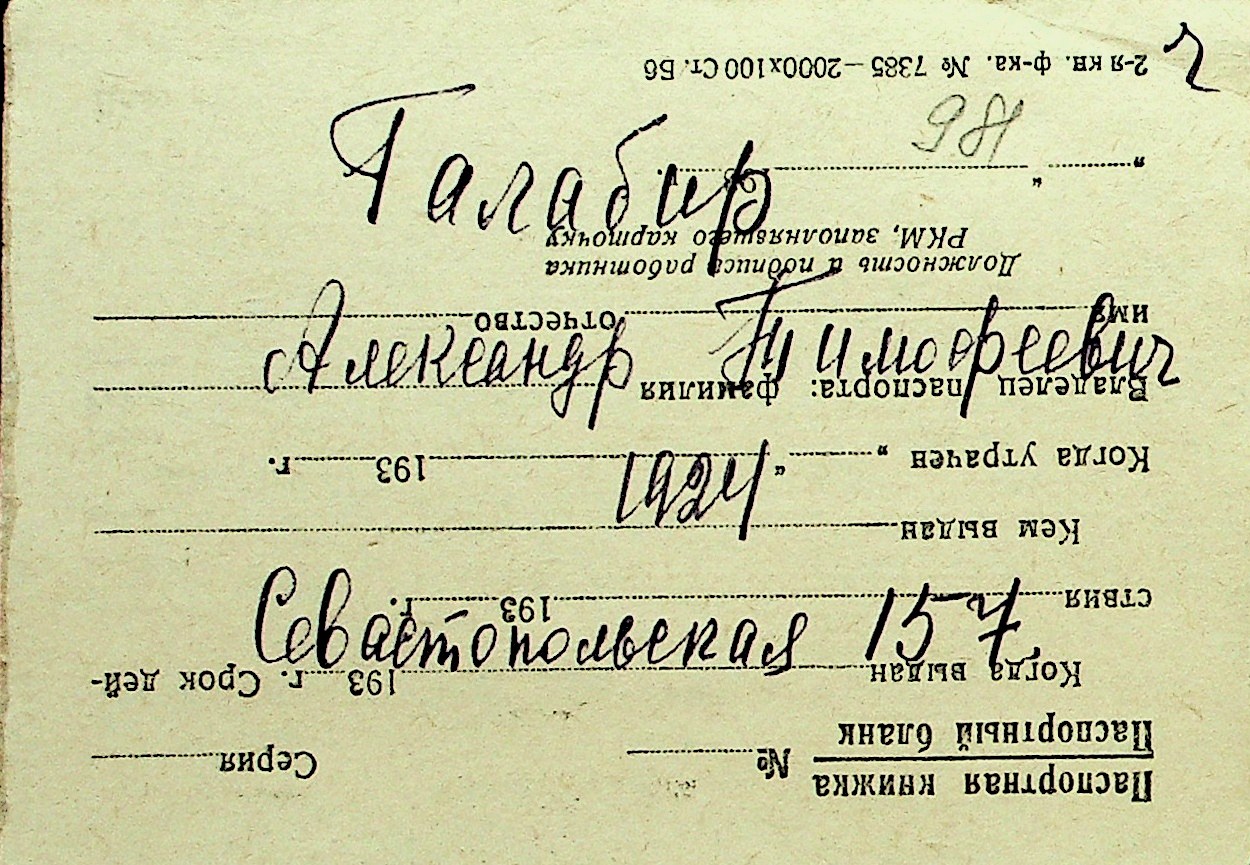 ч
Галабир
Александр Тимофеевич
1924
Севастопольская 157
Паспортная книжка
Паспортный бланк № Серия
Когда выдан 193 г. Срок дей-
ствия 193 г.
Кем выдан
Когда утрачен „ “ 193 г.
Владелец паспорта: фамилия
имя отчество
Должность и подпись работника
РКМ, заполнявшего карточку
„ “ 193 г.
186
2-я кн. ф-ка. № 7385—2000х100 Ст. Б6